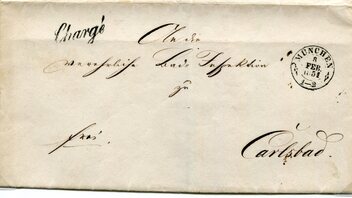 Chargé
MÜNCHEN
8
FEB
1851
1-2
An die
verehrliche Bade Inspektion
zu
frei.
Carlsbad.